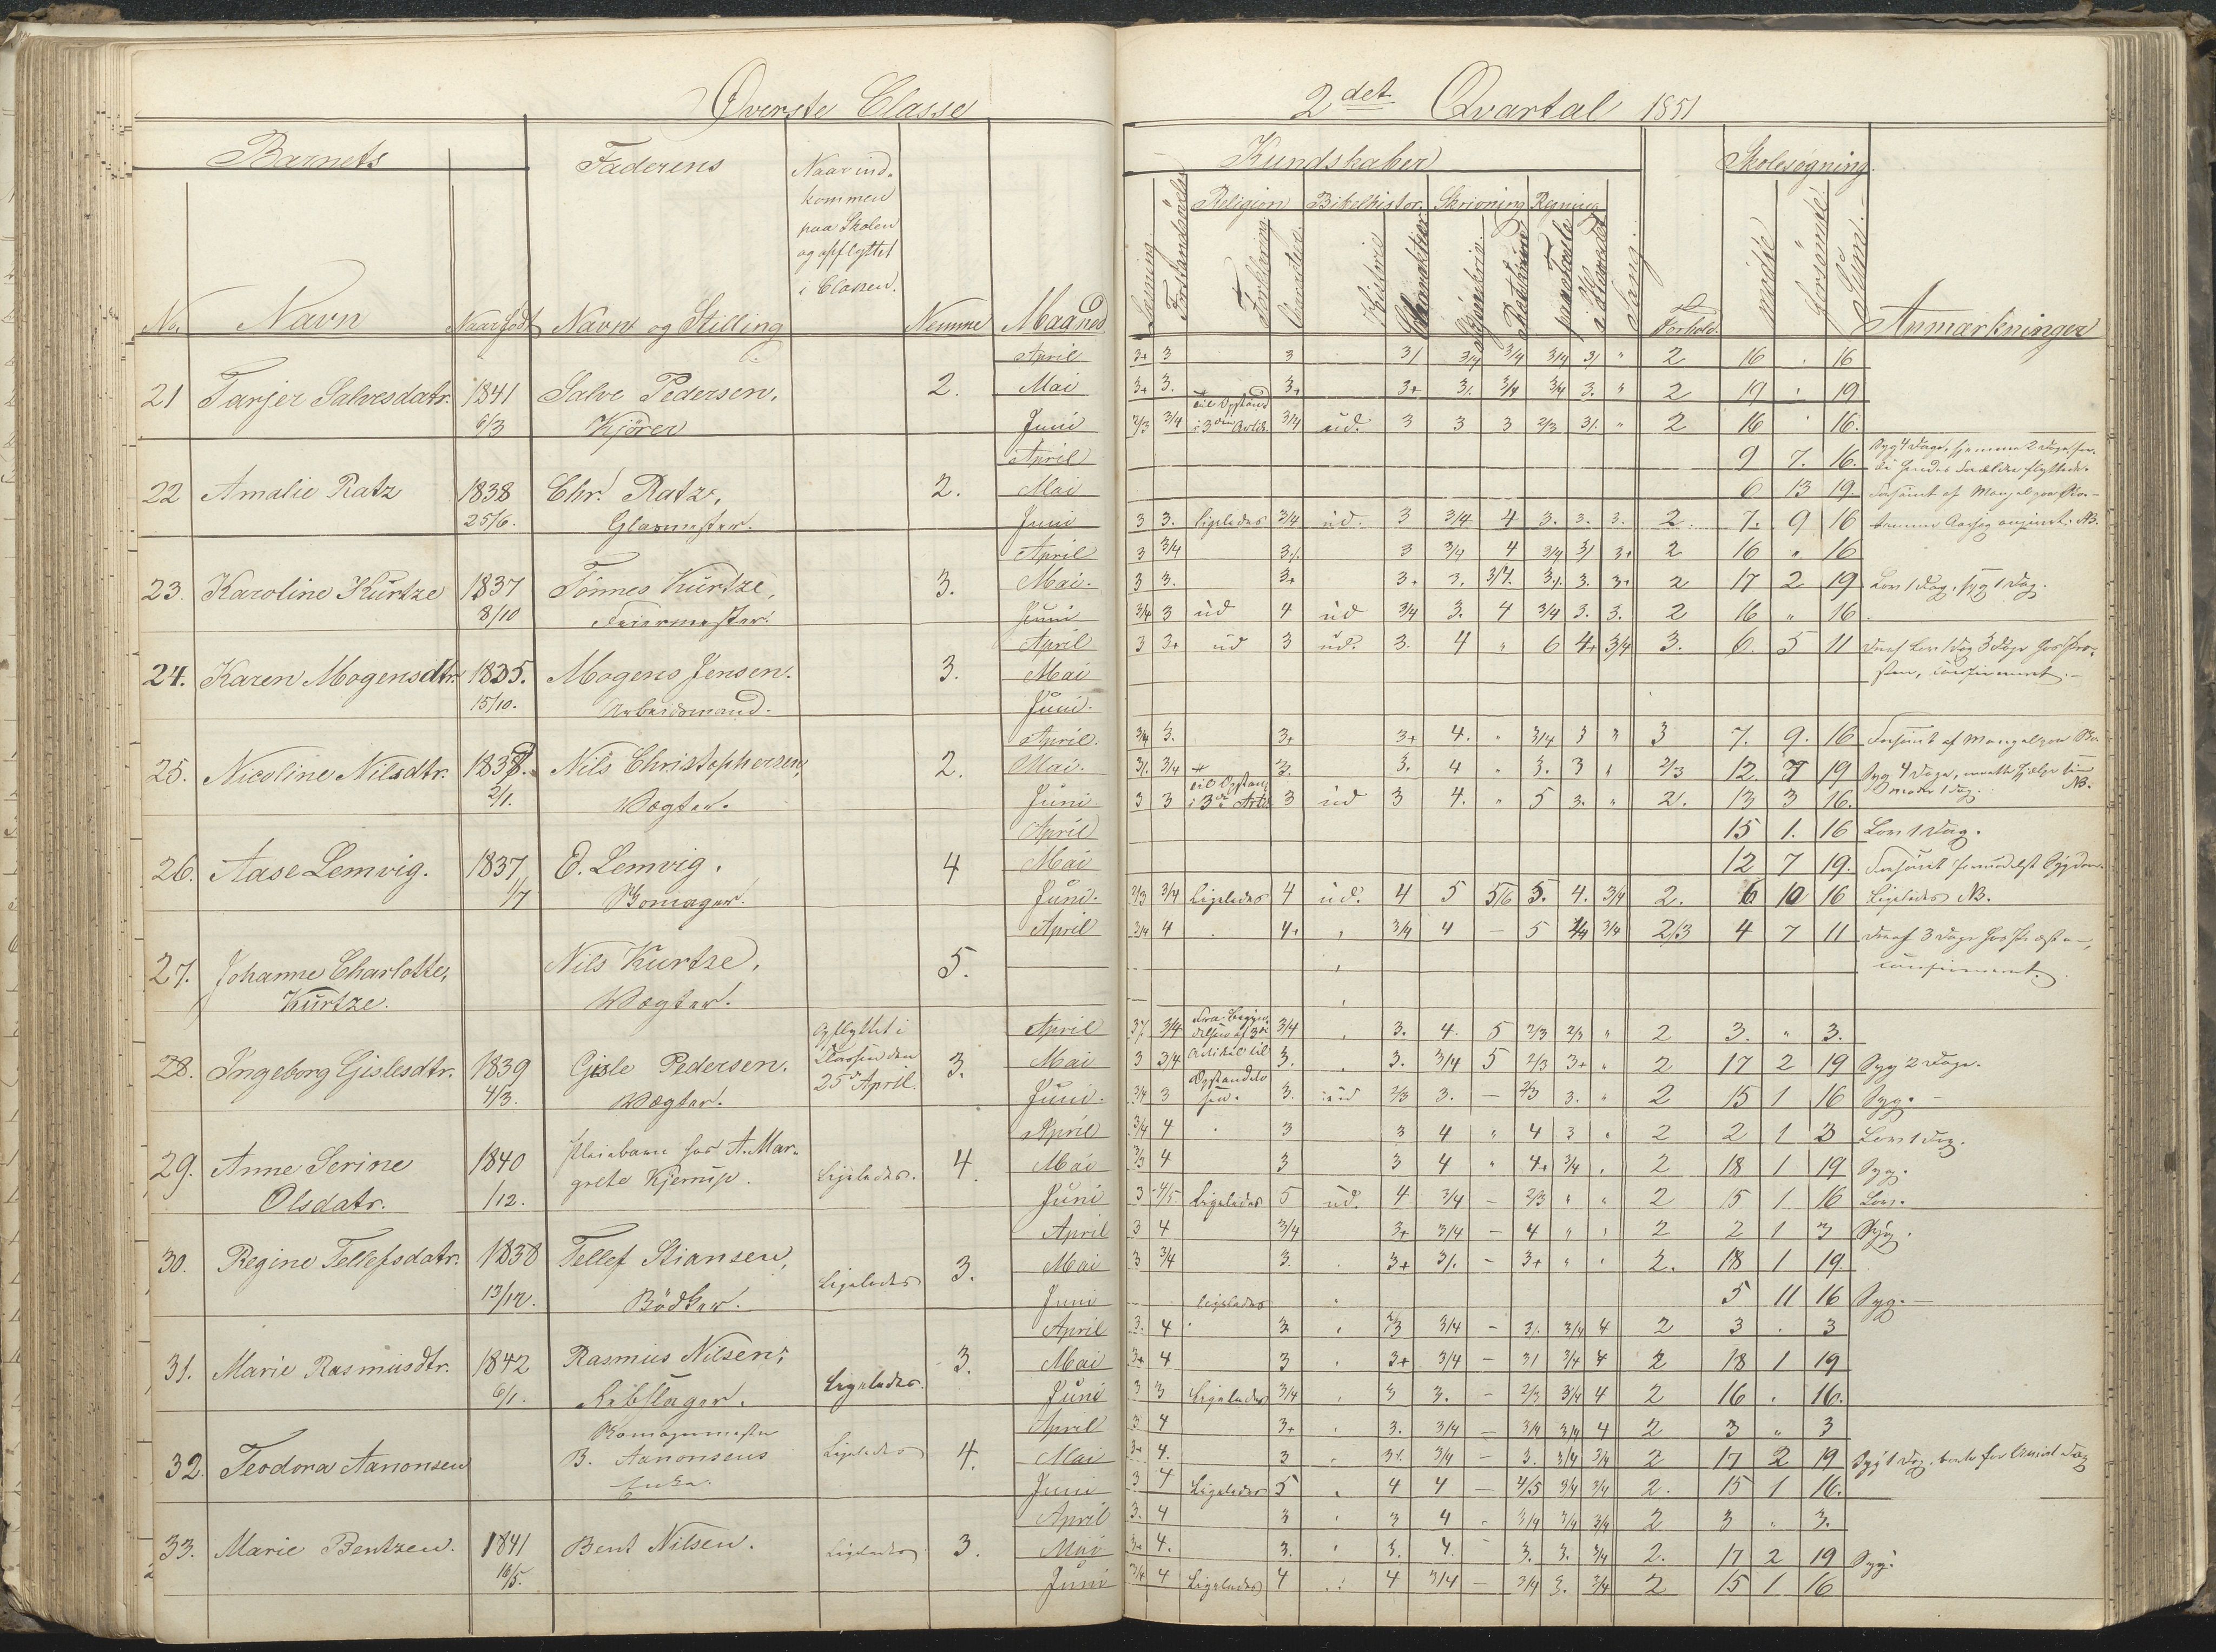 Øverste Classe
2det Qvartal 1851
Barnets
Faderens
Naar ind-
kommen
paa Skolen
og opflyttet
i Classen.
No. Navn Naar født Navn og Stilling Nemme Maaned
Kundskaber
Skolesøgning
Religion Bibelhistor. Skrivning Regning
Læsning. Forstandsøvelse Forklaring Historie Sang. Forhold. mødte forsømte Sum. Anmærkninger
April 3+ 3 3 3/ 3/4 3/4 3/4 3/ " 2 16 . 16
21 Tarjer Salvesdatr. 1841 Salve Pedersen, 2. Mai 3+ 3. 3+ 3+ 3/. 3/4 3/4 3. " 2 19 . 19
6/3 Kjører Juni 2/3 3/4 til Opstand i 3die Artik. 3/4 ud. 3 3 3 2/3 3/. " 2 16 . 16.
April 9 7. 16. Syg 4 Dage, hjemme 2 Dage, for-
di hendes Forældre flyttede.
22 Amalie Ratz 1838 Chr. Ratz, 2. Mai 6 13 19. Forsømt af Mangel paa Sko.
25/6. Glasmester. Juni 3 3. Ligeledes 3/4 ud. 3 3/4 4 3. 3. 3. 2. 7. 9 16
April 3 3/4 3/. 3 3/4 4 3/4 3/ 3+ 2 16 " 16
23. Karoline Kurtze 1837 Tönnes Kurtze, 3. Mai. 3 3. 3+ 3+ 3. 3/4. 3/. 3. 3+ 2 17 2 19 Lov 1 Dag, syg 1 Dag.
8/10 Feiermester. Juni 3/4 3 ud 4 ud 3/4 3. 4 3/4 3. 3. 2 16 " 16.
April 3 3+ ud 3 ud. 3. 4 " 6 4+ 3/4 3. 6. 5 11 deraf Lov 1 Dag 3 Dage hos Pro-
sten, confirmeret.
24. Karen Mogensdtr. 1835. Mogens Jensen. 3. Mai
15/10. Arbeidsmand. Juni.
April. 3/4 3. 3+ 3+ 4. " 3/4 3 " 3 7. 9. 16 Forsømt af Mangel paa Sko.
25. Nicoline Nilsdtr. 1838. Nils Christophersen, 2. Mai. 3/. 3/4 3. 3. 4 " 3. 3 " 2/3 12 7 19 Syg 4 Dage, maatte hjælpe sin
Moder 1 Dag. NB.
2/1. Vægter. Juni. 3 3 til Opstand i 3die Artik 3 ud 3 4. " 5 3. " 2. 13 3 16.
April 15 1. 16 Lov 1 Dag.
26. Aase Lemvig. 1837 E. Lemvig. 4 Mai 12 7 19. Forsømt formedelst Sygdom.
1/7 Juni. 2/3 3/4 Ligeledes 4 ud. 4 5 5/6 5. 4. 3/4 2. 6 10 16 Ligeledes NB.
April 3/4 4 . 4+ , 3/4 4 – 5 4/4 3/4 2/3 4 7 11 deraf 3 Dage hos Præsten,
confirmeret.
27. Johanne Charlotte Nils Kurtze. 5.
Kurtze. Vægter.
Opflyttet i
Classen den
25de April.
April 3/. 3/4 Fra Begyn- 3/4 , 3. 4. 5 2/3 2/3 " 2 3. " 3.
28. Ingeborg Gislesdtr. 1839 Gisle Pedersen. 3. Mai 3 3/4 Artikel til 3. , 3. 3/4 5 2/3 3+ " 2 17 2 19 Syg 2 Dage.
4/3. Vægter. Juni. 3/4 3 Opstandelsen. 3. ud 2/3 3. – 2/3 3. " 2 15 1 16 Syg.
April 3/4 4 . 3 3 4 " 4 3 " 2 2 1 3 Lov 1 Dag.
29. Anne Serine 1840 Pleiebarn hos A. Mar-
grete Ligeledes. 4. Mai 3/3 4 3 3 4 " 4+ 3/4 . 2 18 1 19 Syg.
Olsdatr. 1/12. Juni 3 4/5 Ligeledes 5 ud. 4 3/4 – 2/3 " " 2 15 1 16 Lov.
April 3 4 3/4 3+ 3/4 – 4 " " 2 2 1 3 Syg.
30. Regine Tellefsdatr. 1838 Tellef Stiansen, Ligeledes 3. Mai 3 3/4 3. 3+ 3/. – 3+ " " 2. 18 1 19
13/12. Bödker. Juni ligeledes 5 11 16 Syg.
April 3. 4 3 , 2/3 3/4 – 3/. 3/4 4 2 3 . 3
31. Marie Rasmusdtr. 1842 Rasmus Nilsen, Ligeledes. 3. Mai 3+ 4 3 , 3+ 3/4 – 3/ 3/4 4 2 18 1 19
6/1. Rebslager. Juni 3 3 Ligeledes 3/4 , 3 3. – 2/3 3/4 4 2 16 . 16.
April 3 4 3+ , 3. 3/4 – 3/4 3/4 4 2 3 " 3
32. Teodora Aanonsen B. Aanonsens Enke. Ligeledes 4. Mai 3+ 4. 3 , 3+ 3/4 – 3. 3/4 3/4 2 17 2 19
Juni 3 4 Ligeledes 5 , 4 4 – 4/5 3/4 3/4 2. 15 1 16.
April 3. 4 3 , 3 4 " 3/4 3/4 3/4 2 3 " 3.
33. Marie Bentzen. 1841 Bent Nilsen. Ligeledes 3. Mai 3+ 4. 3. , 3. 4. – 3. 3. 3/4 2. 17 2 19 Syg.
16/5. Juni 3/4 4 Ligeledes 4 4 3/4 – 3/4 3. 3/4 2 15 1 16